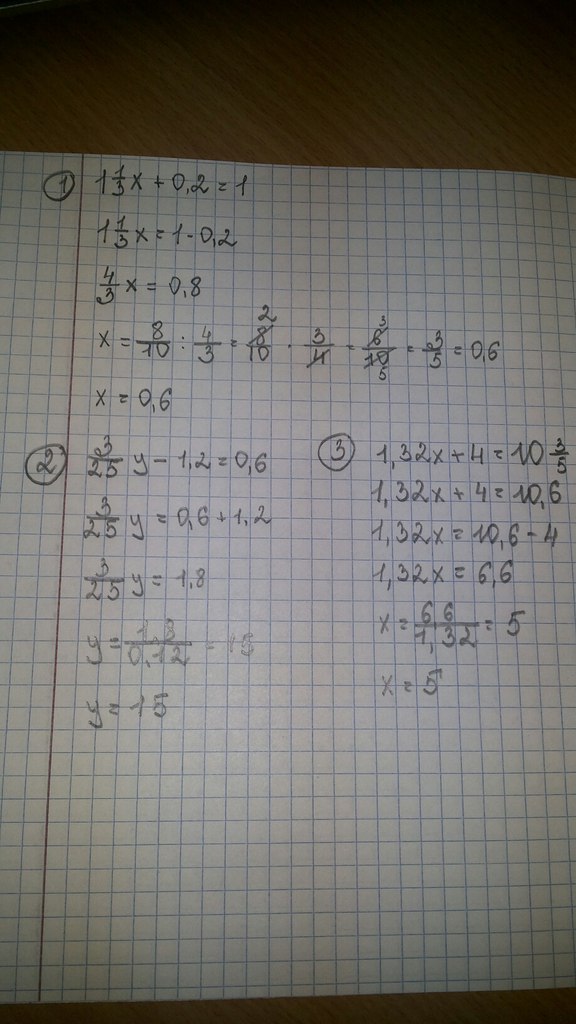 1 1 1/3 x + 0,2 = 1
1 1/3 x = 1 - 0,2
4/3 x = 0,8
x = 8/10 : 4/3 = 8/10 2 · 3/4 = 6/10 3 5 = 3/5 = 0,6
x = 0,6
2 3/25 y - 1,2 = 0,6
3/25 y = 0,6 + 1,2
3/25 y = 1,8
y = 1,8/0,12 = 15
y = 15
3 1,32x + 4 = 10 3/5
1,32x + 4 = 10,6
1,32x = 10,6 - 4
1,32x = 6,6
x = 6,6/1,32 = 5
x = 5